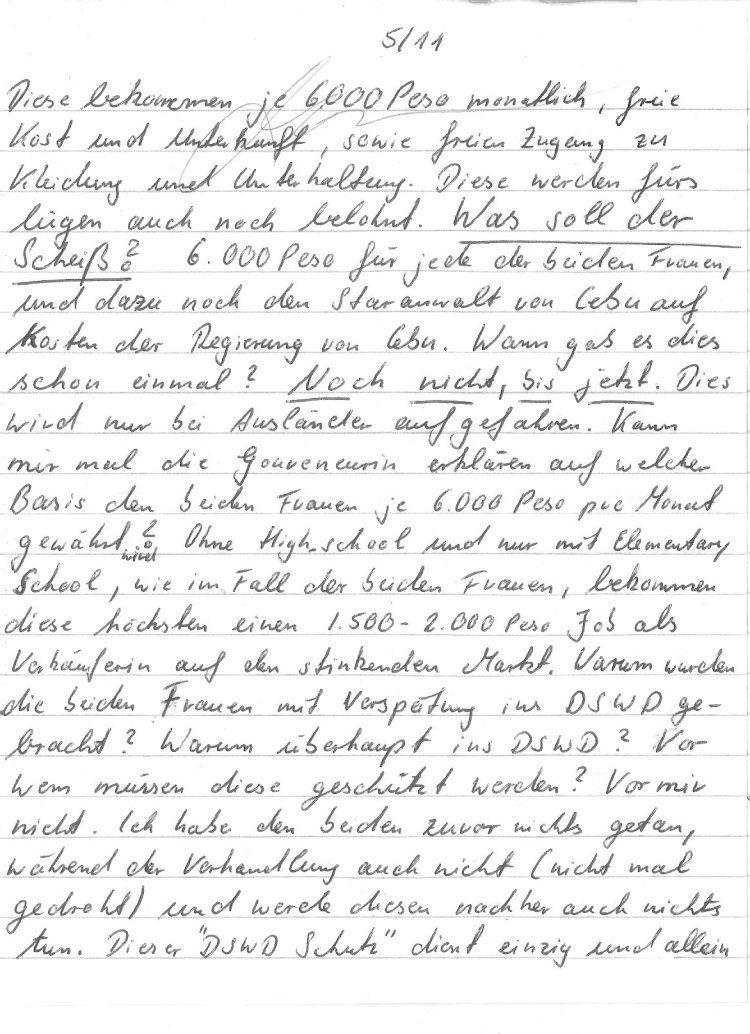 5/11
Diese bekommen je 6000 Peso monatlich, freie
Kost und Unterkunft, sowie freien Zugang zu
Kleidung und Unterhaltung. Diese werden fürs
lügen auch noch belohnt. Was soll der
Scheiß? 6.000 Peso für jede der beiden Frauen,
und dazu noch den Staranwalt von Cebu auf
Kosten der Regierung von Cebu. Wann gab es dies
schon einmal? Noch nicht, bis jetzt. Dies
wird nur bei Ausländer aufgefahren. Kann
mir mal die Gouveneurin erklären auf welcher
Basis den beiden Frauen je 6.000 Peso pro Monat
gewährt wird? Ohne High-school und nur mit Elementary
School, wie im Fall der beiden Frauen, bekommen
diese höchsten einen 1.500 - 2.000 Peso Job als
Verkäuferin auf den stinkenden Markt. Warum wurden
die beiden Frauen mit Verspätung ins DSWD ge-
bracht? Warum überhaupt ins DSWD? Vor
wem müssen diese geschützt werden? Vor mir
nicht. Ich habe den beiden zuvor nichts getan,
während der Verhandlung auch nicht (nicht mal
gedroht) und werde diesen nachher auch nichts
tun. Dieser "DSWD Schutz" dient einzig und allein